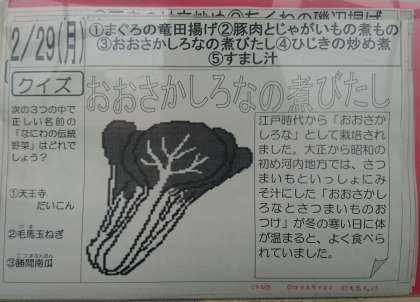 2/29(月)
①まぐろの竜田揚げ②豚肉とじゃがいもの煮もの
③おおさかしろなの煮びたし④ひじきの炒め煮
⑤すまし汁
クイズ
おおさかしろなの煮びたし
次の3つの中で
正しい名前の
「なにわの伝統
野菜」はどれで
しょう?
①天王寺
だいこん
②毛馬玉ねぎ
③勝間南瓜
江戸時代から「おおさか
しろな」として栽培され
ました。大正から昭和の
初め河内地方では、さつ
まいもといっしょにみ
そ汁にした「おおさかし
ろなとさつまいものお
つけ」が冬の寒い日に体
が温まると、よく食べら
れていました。